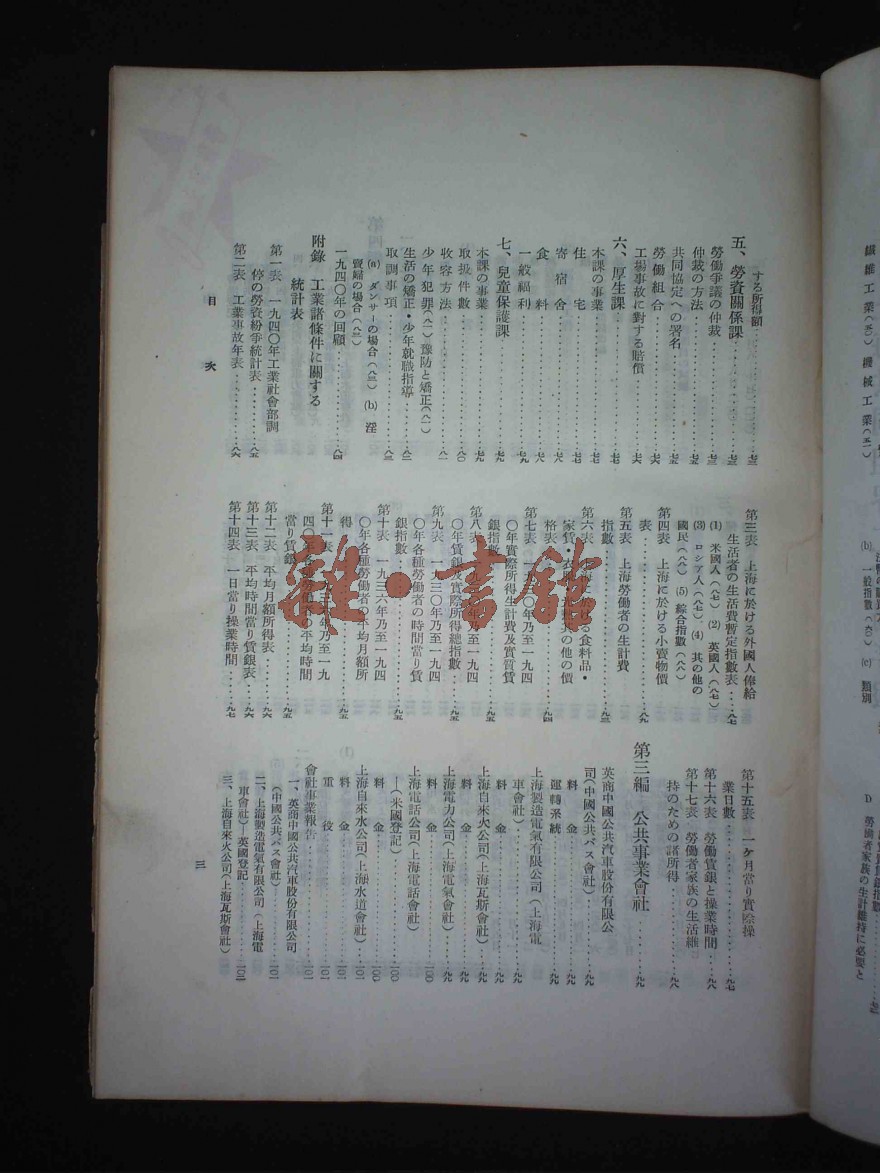 する所得額……七三
五、勞資關係課……七三
勞働爭議の仲裁……七三
仲裁の方法……七五
共同協定への署名……七五
勞働組合……七六
工場事故に對する賠償……七六
六、厚生課……七七
本課の事業……七七
住宅……七七
寄宿舍……七八
食料……七八
一般福利……七九
七、兒童保護課……七九
本課の事業……七九
取扱件數……八〇
收容方法……八一
少年犯罪(八一)豫防と矯正(八一)
生活の矯正・少年就職指導……八二
取調事項……八三
(a) ダンサーの場合(八三) (b) 淫
賣婦の場合(八三)
一九四〇年の回顧……八四
附錄 工業諸條件に關する
統計表
第一表 一九四〇年工業社會部調
停の勞資紛爭統計表……八五
第二表 工業事故年表……八六
第三表 上海に於ける外國人俸給
生活者の生活費暫定指數表……八七
(1) 米國人(八七) (2) 英國人(八七)
(3) ロシア人(八七) (4) 其の他の
國民(八八) (5) 綜合指數(八八)
第四表 上海に於ける小賣物價
表……八九
第五表 上海勞働者の生計費
指數……九三
第六表 上海に於ける食料品・
家賃・衣料・其の他の價
格表……九四
第七表 一九三〇年乃至一九四
〇年實際所得生計費及實質賃
銀指數……九五
第八表 一九三六年乃至一九四
〇年賃銀及實際所得總指數……九五
第九表 一九三〇年乃至一九四
〇年各種勞働者の時間當り賃
銀指數……九五
第十表 一九三六年乃至一九四
〇年各種勞働者の平均月額所
得……九五
第十一表 一九三六年乃至一九
四〇年各種勞働者の平均時間
當り賃銀……九五
第十二表 平均月額所得表……九六
第十三表 平均時間當り賃銀表……九六
第十四表 一日當り操業時間……九七
第十五表 一ケ月當り實際操
業日數……九七
第十六表 勞働賃銀と操業時間……九八
第十七表 勞働者家族の生活維
持のための諸所得……九八
第三編 公共事業會社……九九
英商中國公共汽車股份有限公
司(中國公共バス會社)……九九
料金……九九
運轉系統……九九
上海製造電氣有限公司(上海電
車會社)……九九
料金……九九
上海自來火公司(上海瓦斯會社)……九九
料金……九九
上海電力公司(上海電氣會社)……九九
料金……一〇〇
上海電話公司(上海電話會社)
—(米國登記)……一〇〇
料金……一〇〇
上海自來水公司(上海水道會社)……一〇一
料金……一〇一
重役……一〇一
會社事業報告……一〇一
一、英商中國公共汽車股份有限公司
(中國公共バス會社)……一〇一
二、上海製造電氣有限公司(上海電
車會社)—英國登記……一〇二
三、上海自來火公司(上海瓦斯會社)
目次
三
雜・書館
纖維工業(五〇) 機械工業(五一)
(b) 一般指數(六〇) (c) 類別
D 勞働者家族の生計維持に必要と